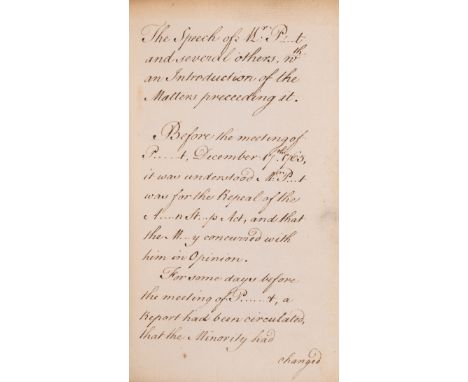 The Speech of: Mr. P...t
and several others, wth
an Introduction of the
Matters preceeding it.
Before the meeting of
P......t, December 17th 1765,
it was understood Mr. P...t
was for the Repeal of the
A....n St...p Act, and that
the M...y concurred with
him in Opinion.
For some days before
the meeting of P......t, a
Report had been circulated,
that the Minority had
changed